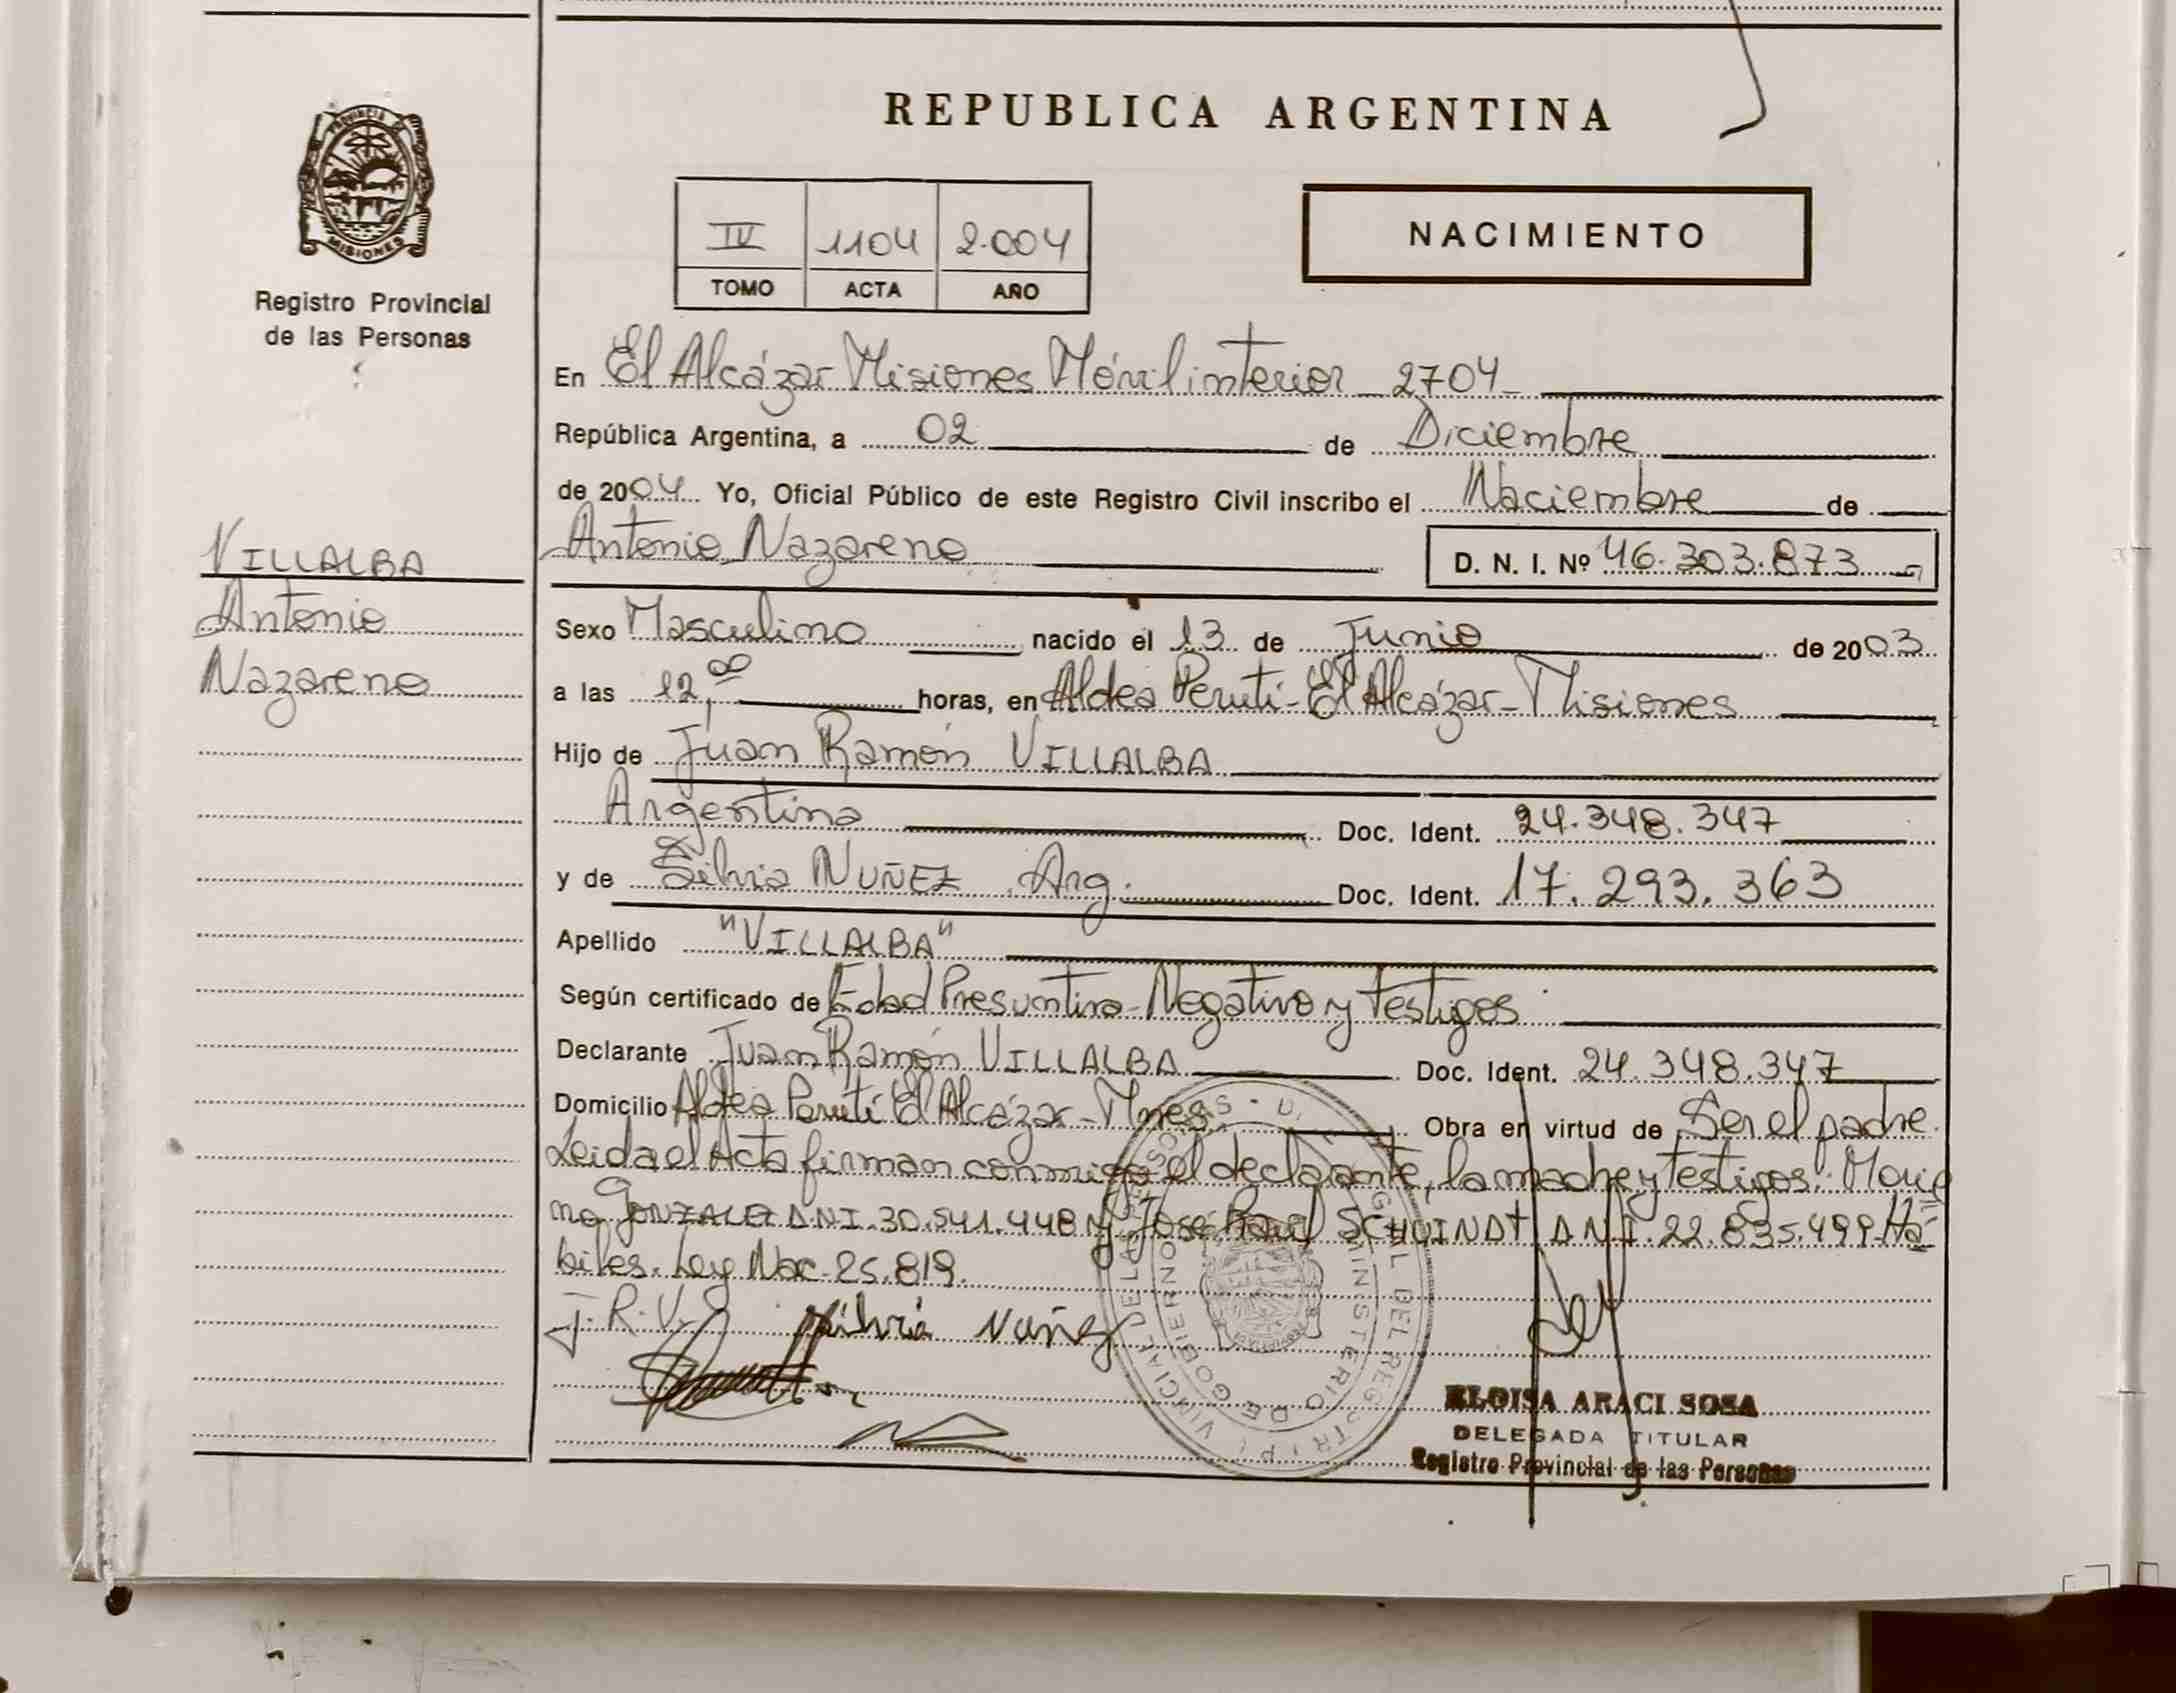 PROVINCIA DE
MISIONES
Registro Provincial
de las Personas
VILLALBA
Antonio
Nazareno
REPUBLICA ARGENTINA
IV 1104 2.004
TOMO ACTA AÑO
NACIMIENTO
En El Alcázar Misiones Móvil interior 2704
República Argentina, a 02 de Diciembre
de 2004 Yo, Oficial Público de este Registro Civil inscribo el Naciembre de
Antonio Nazareno D. N. I. Nº 46.303.873
Sexo Masculino nacido el 13 de Junio de 2003
a las 12,00 horas, en Aldea Perutí - El Alcázar - Misiones
Hijo de Juan Ramón VILLALBA
Argentina Doc. Ident. 24.348.347
y de Silvia NUÑEZ Arg. Doc. Ident. 17.293.363
Apellido "VILLALBA"
Según certificado de Edad Presuntiva - Negativo y Testigos
Declarante Juan Ramón VILLALBA Doc. Ident. 24.348.347
Domicilio Aldea Perutí El Alcázar - Mnes. Obra en virtud de Ser el padre.
Leida el Acta firman conmigo el declarante, la madre y testigos: Maria
no GONZALEZ D.N.I. 30.541.448 y José Raul SCHUINDT D.N.I. 22.835.499 Há=
biles. Ley Nac. 25.819.
J.R.V. Silvia Nuñez
ELOISA ARACI SOSA
DELEGADA TITULAR
Registro Provincial de las Personas